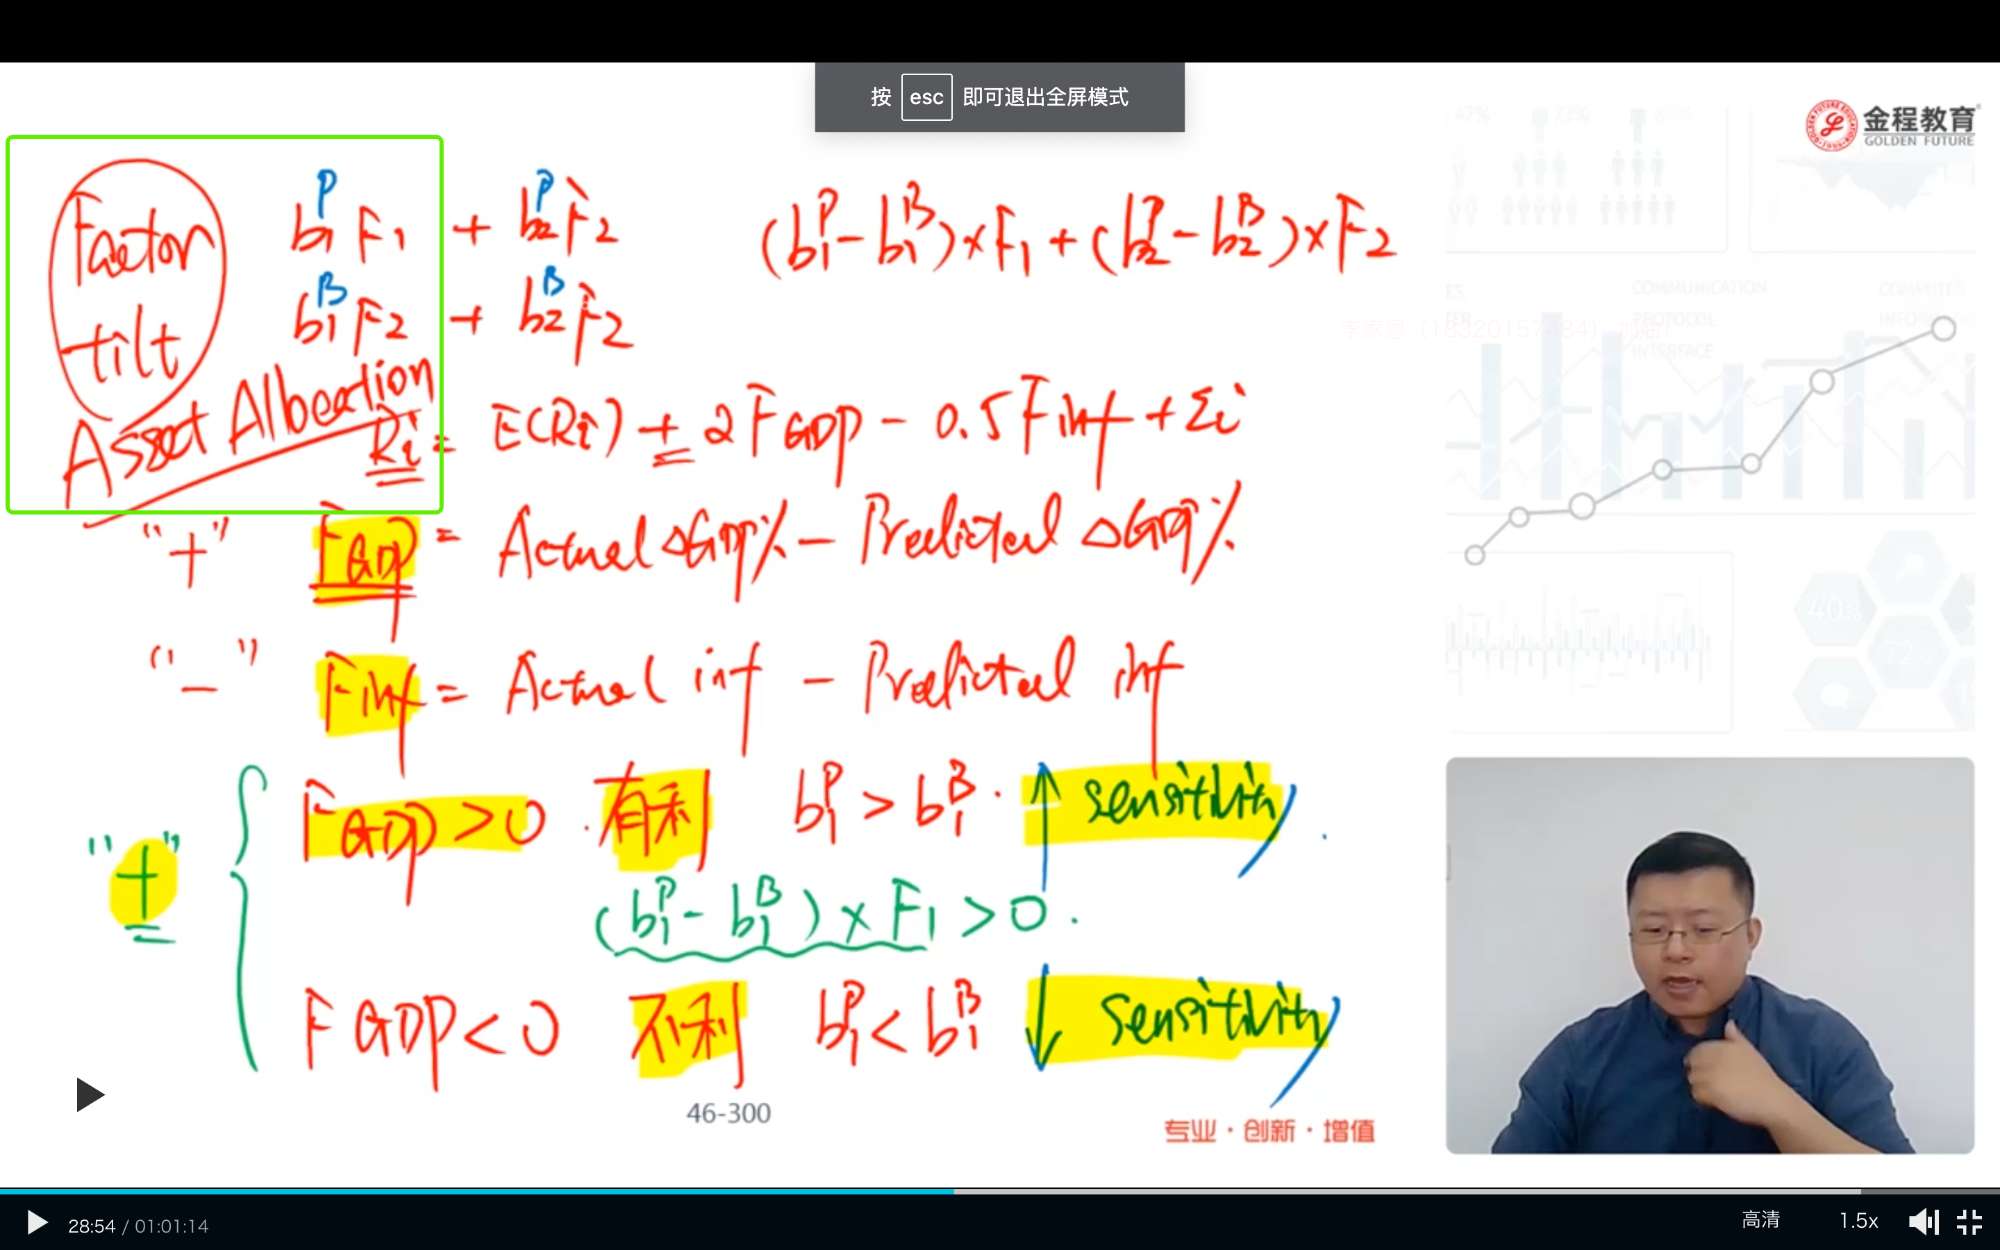 按 esc 即可退出全屏模式
金程教育
GOLDEN FUTURE
Factor tilt
b₁ᴾ F₁ + b₂ᴾ F₂
b₁ᴮ F₂ + b₂ᴮ F₂
(b₁ᴾ - b₁ᴮ) × F₁ + (b₂ᴾ - b₂ᴮ) × F₂
Asset Allocation
Ri = E(Ri) + 2 FGDP - 0.5 Finf + Σi
"+" FGDP = Actual ΔGDP% - Predicted ΔGDP%
"-" Finf = Actual inf - Predicted inf
"+"
FGDP > 0 . 有利 b₁ᴾ > b₁ᴮ . ↑ sensitivity
(b₁ᴾ - b₁ᴮ) × F₁ > 0 .
FGDP < 0 不利 b₁ᴾ < b₁ᴮ ↓ sensitivity
46-300
专业·创新·增值
COMMUNICATION
PROTOCOL
INTERFACE
28:54 / 01:01:14
高清
1.5x